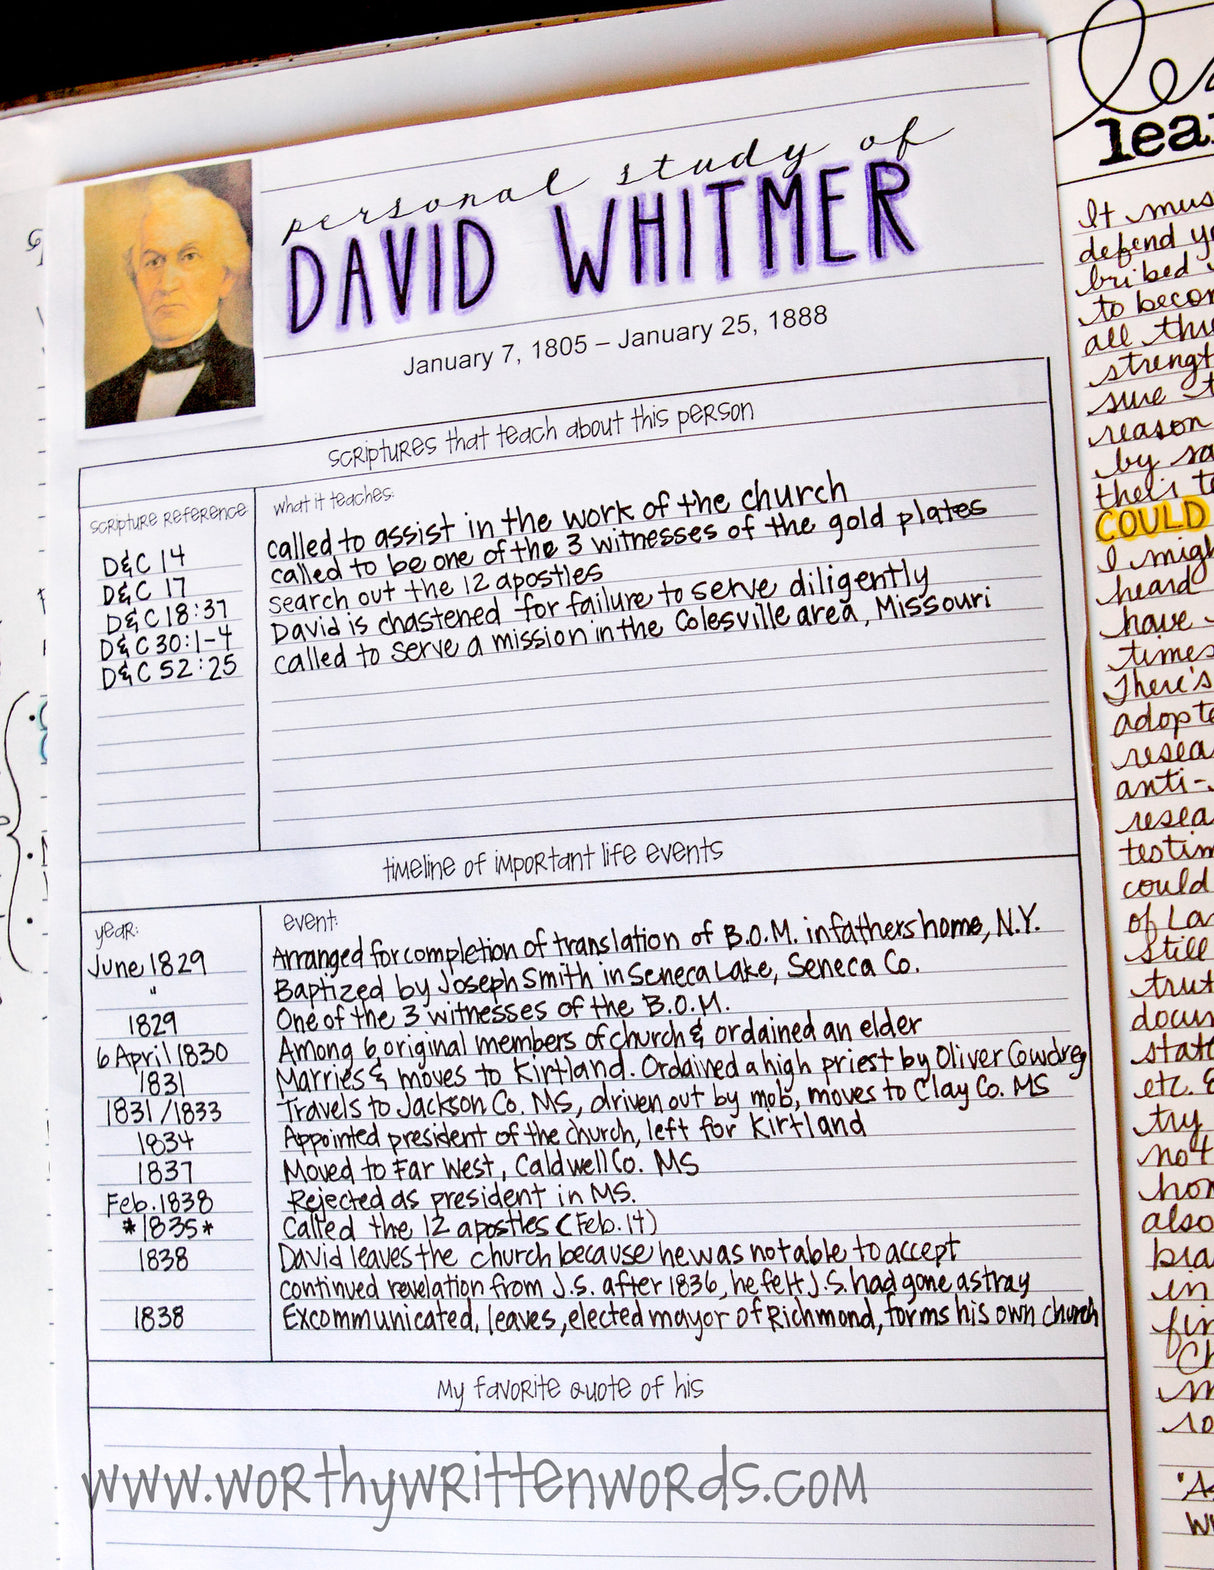 personal study of
DAVID WHITMER
January 7, 1805 – January 25, 1888
scriptures that teach about this person
scripture reference
what it teaches:
D&C 14 called to assist in the work of the church
D&C 17 called to be one of the 3 witnesses of the gold plates
D&C 18:37 search out the 12 apostles
D&C 30:1-4 David is chastened for failure to serve diligently
D&C 52:25 called to serve a mission in the Colesville area, Missouri
timeline of important life events
year: event:
June 1829 Arranged for completion of translation of B.O.M. in fathers home, N.Y.
" Baptized by Joseph Smith in Seneca Lake, Seneca Co.
1829 One of the 3 witnesses of the B.O.M.
6 April 1830 Among 6 original members of church & ordained an elder
1831 Marries & moves to Kirtland. Ordained a high priest by Oliver Cowdrey
1831/1833 Travels to Jackson Co. MS, driven out by mob, moves to Clay Co. MS
1834 Appointed president of the church, left for Kirtland
1837 Moved to Far West, Caldwell Co. MS
Feb. 1838 Rejected as president in MS.
*1835* Called the 12 apostles (Feb. 14)
1838 David leaves the church because he was not able to accept
continued revelation from J.S. after 1836, he felt J.S. had gone astray
1838 Excommunicated, leaves, elected mayor of Richmond, forms his own church
my favorite quote of his
www.worthywrittenwords.com
It
defend
bribed
to
all
strength
sure
reason
by
COULD
I
heard
have
times
There's
testim
could
of
still
etc.
try
also
in